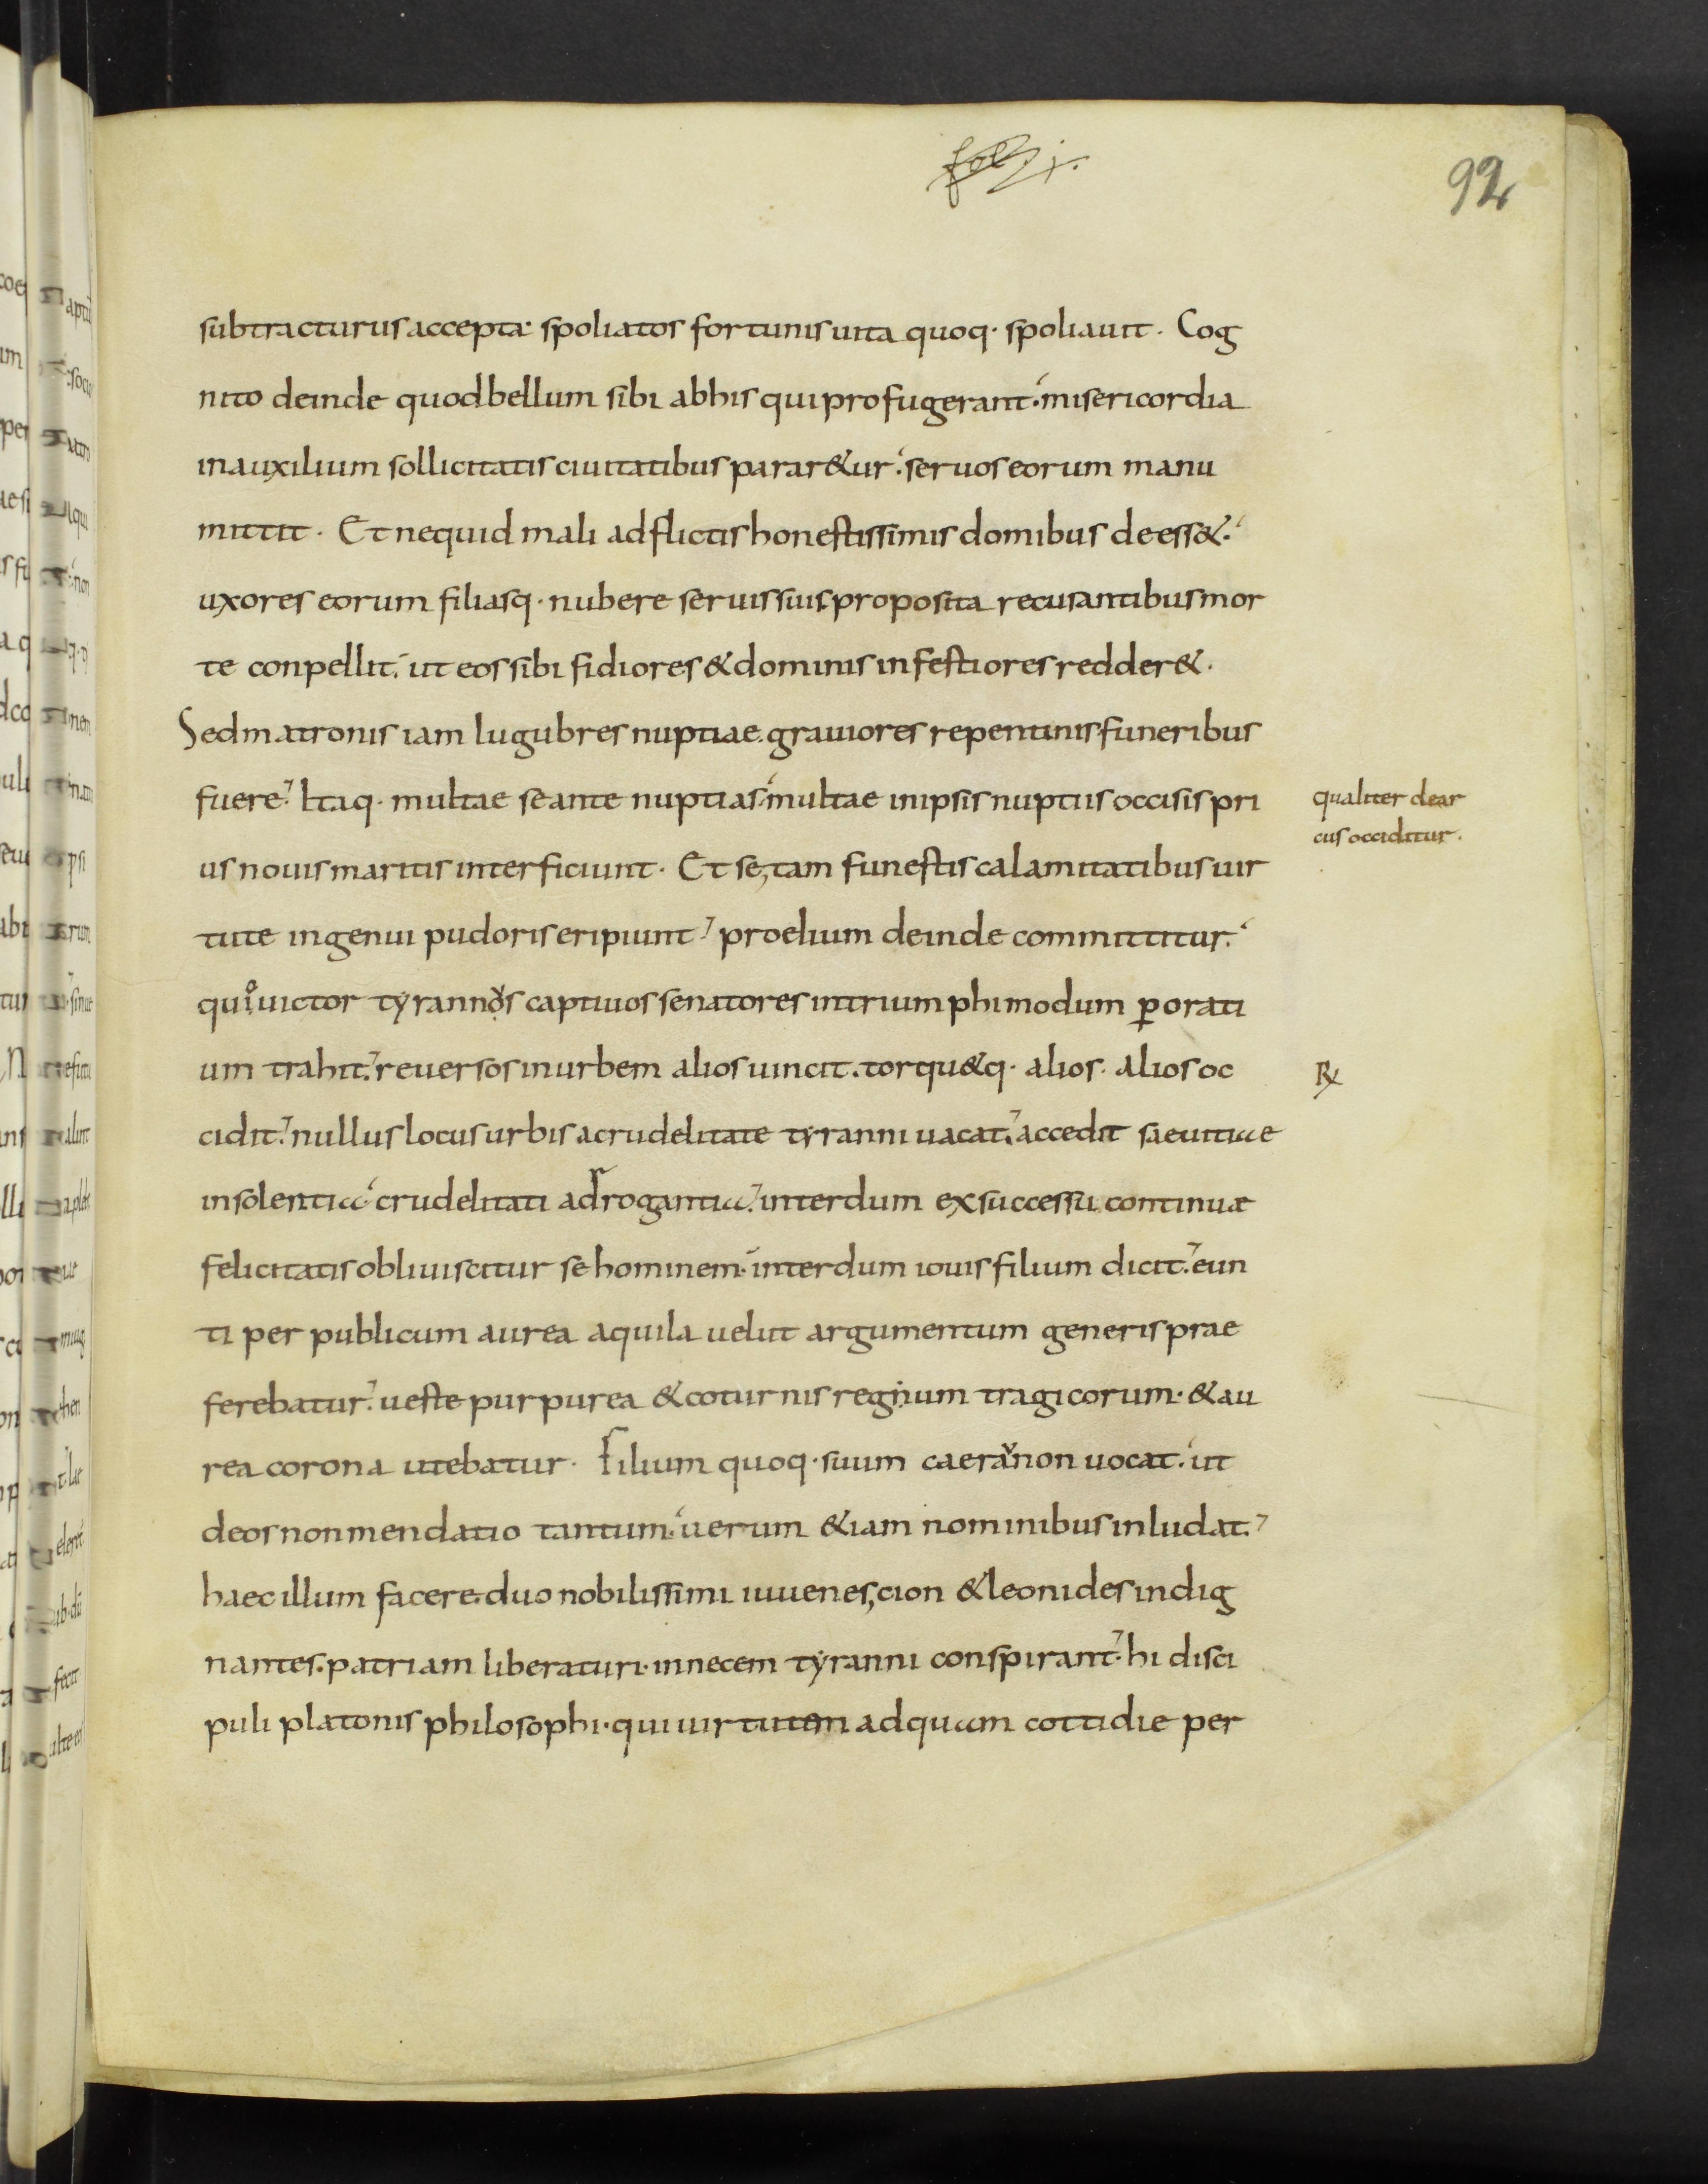 fol. j.
92
subtracturus accepta· spoliatos fortunis uita quoq· spoliauit· Cog
nito deinde quod bellum sibi abhis qui profugerant· misericordia
inauxilium sollicitatis ciuitatibus parar&ur· seruos eorum manu
mittit· Et nequid mali adflictis honestissimis domibus deess&·
uxores eorum filiasq· nubere seruis suis proposita recusantibus mor
te conpellit· ut eos sibi fidiores & dominis infestiores redder&·
Sed matronis iam lugubres nuptiae· grauiores repentinis funeribus
fuere· Itaq· multae se ante nuptias· multae inipsis nuptiis occisis pri
us nouis maritis interficiunt· Et se, tam funestis calamitatibus uir
tute ingenui pudoris eripiunt· proelium deinde committitur·
quo uictor tyrannos captiuos senatores intrium phi modum p orati
um trahit· reuersos inurbem alios uincit· torqu&q· alios· alios oc
cidit· nullus locus urbis acrudelitate tyranni uacat· accedit saeuitiae
insolentia· crudelitati adrogantia· interdum ex successu continuae
felicitatis obliuiscitur se hominem· interdum iouis filium dicit· eun
ti per publicum aurea aquila uelut argumentum generis prae
ferebatur· ueste purpurea & coturnis regnum tragicorum· & au
rea corona utebatur· Filium quoq· suum caeraunon uocat· ut
deos non mendatio tantum· uerum &iam nominibus inludat·
haec illum facere· duo nobilissimi iuuenes, cion & leonides indig
nantes· patriam liberaturi· innecem tyranni conspirant· hi disci
puli platonis philosophi· qui uirtutem adquam cottidie per
qualiter clear
cus occiditur·
R